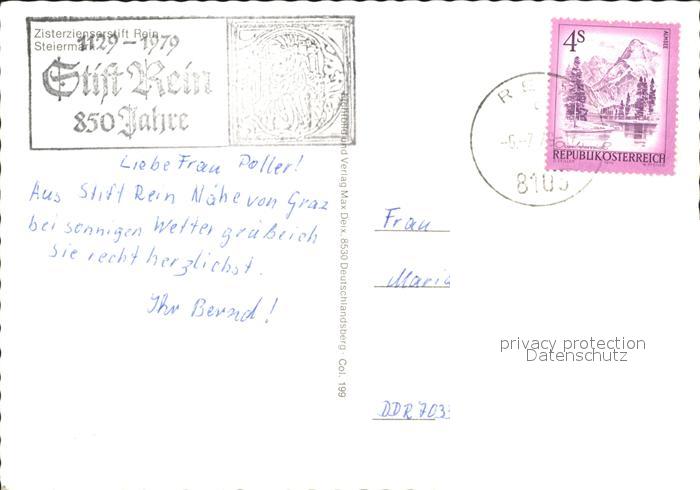 Zisterzienserstift Rein
Steiermark
1129-1979
Stift Rein
850 Jahre
4S
ALMSEE
REPUBLIK ÖSTERREICH
-6.-7.
Liebe Frau Poller!
Aus Stift Rein Nähe von Graz
bei sonnigen Wetter grüße ich
Sie recht herzlichst.
Ihr Bernd!
und Verlag Max Deix, 8530 Deutschlandsberg · Col. 199
Frau
Maria
DDR 703
privacy protection
Datenschutz